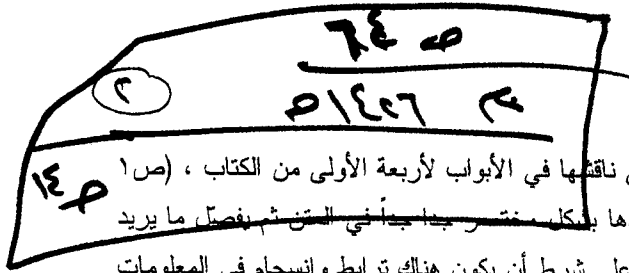 ص ٦٤
٢
م ١٤٢٦ ص
ناقشها في الأبواب لأربعة الأولى من الكتاب ، (ص١
ص ١٤
ها بشكل مختصر جدا جداً في المتن ثم يفصّل ما يريد
على شرط أن يكون هناك ترابط وانسجام في المعلومات